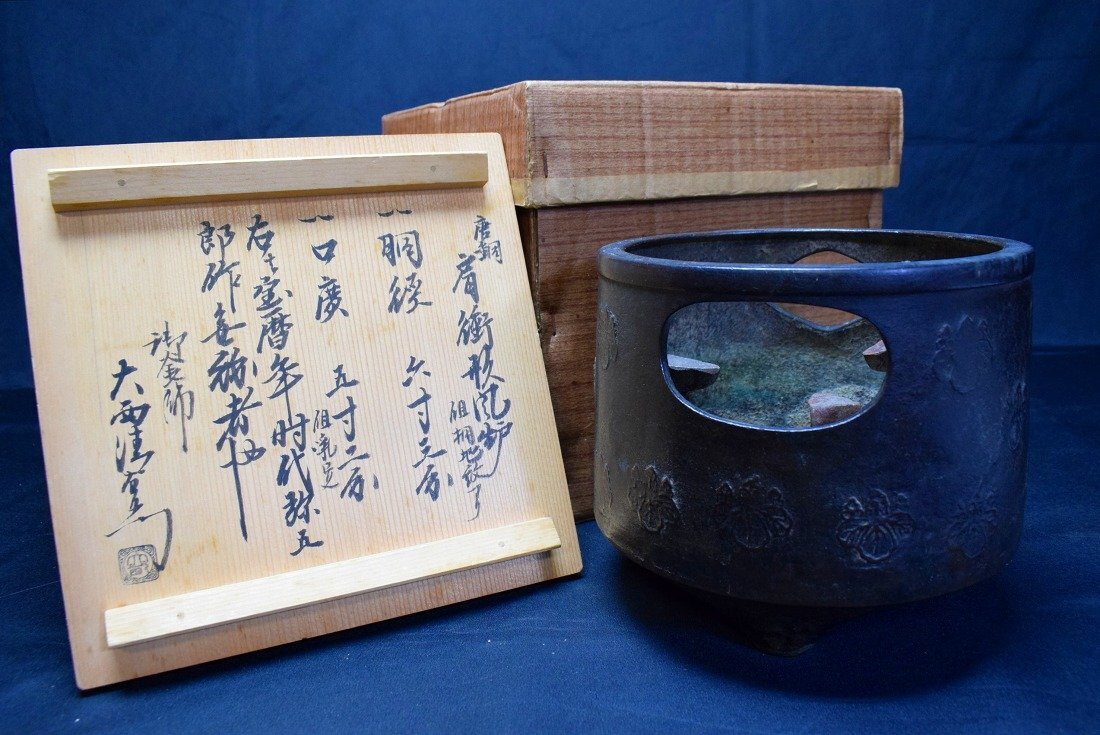 唐銅 肩衝形風炉 但桐地紋有
一胴径 六寸三分
一口廣 五寸二分 但乳足
右ハ宝暦年時代弥五
郎作無疑者也
御釜師
大西清右衛門